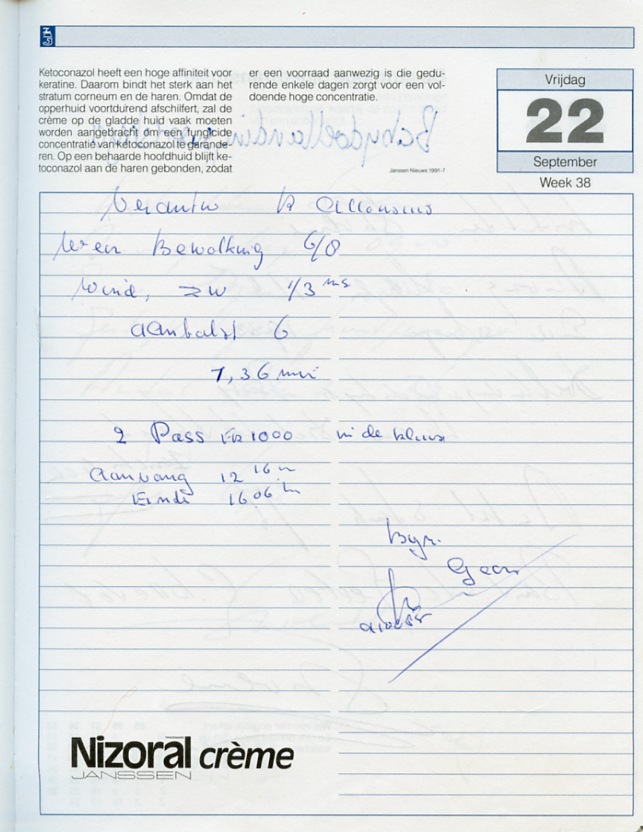 Ketoconazol heeft een hoge affiniteit voor
keratine. Daarom bindt het sterk aan het
stratum corneum en de haren. Omdat de
opperhuid voortdurend afschilfert, zal de
crème op de gladde huid vaak moeten
worden aangebracht om een fungicide
concentratie van ketoconazol te garande-
ren. Op een behaarde hoofdhuid blijft ke-
toconazol aan de haren gebonden, zodat
er een voorraad aanwezig is die gedu-
rende enkele dagen zorgt voor een vol-
doende hoge concentratie.
Janssen Nieuws 1991-7
Vrijdag
22
September
Week 38
Weer Bewolking 6/8
Wind, ZW 1/3 ms
aanbalst 6
1,36
2 Pass 1000 in de kluis
Aanvang 12 16
Einde 16.06
Bijz.
Geen
Nizoral crème
JANSSEN